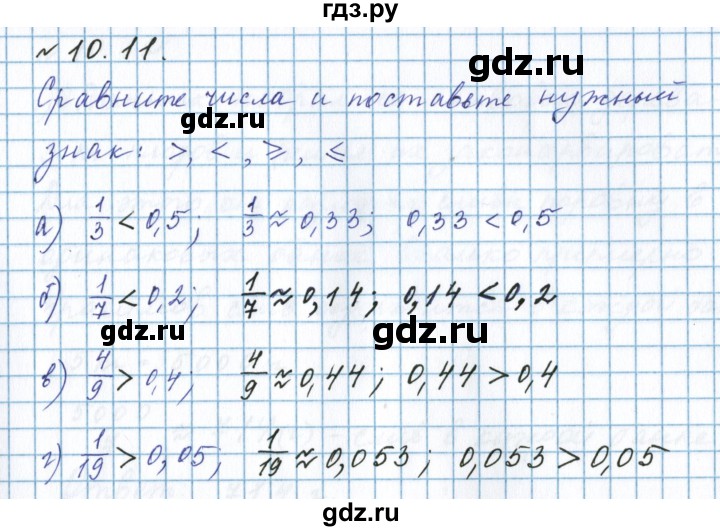 гдз.ру
№ 10.11.
gdz.ru
Сравните числа и поставьте нужный
gdz.ru
знак: >, <, ⩾, ⩽
а) 1/3 < 0,5; 1/3 ≈ 0,33; 0,33 < 0,5
б) 1/7 < 0,2; 1/7 ≈ 0,14; 0,14 < 0,2
gdz.ru gdz.ru
в) 4/9 > 0,4; 4/9 ≈ 0,44; 0,44 > 0,4
г) 1/19 > 0,05; 1/19 ≈ 0,053; 0,053 > 0,05
gdz.ru